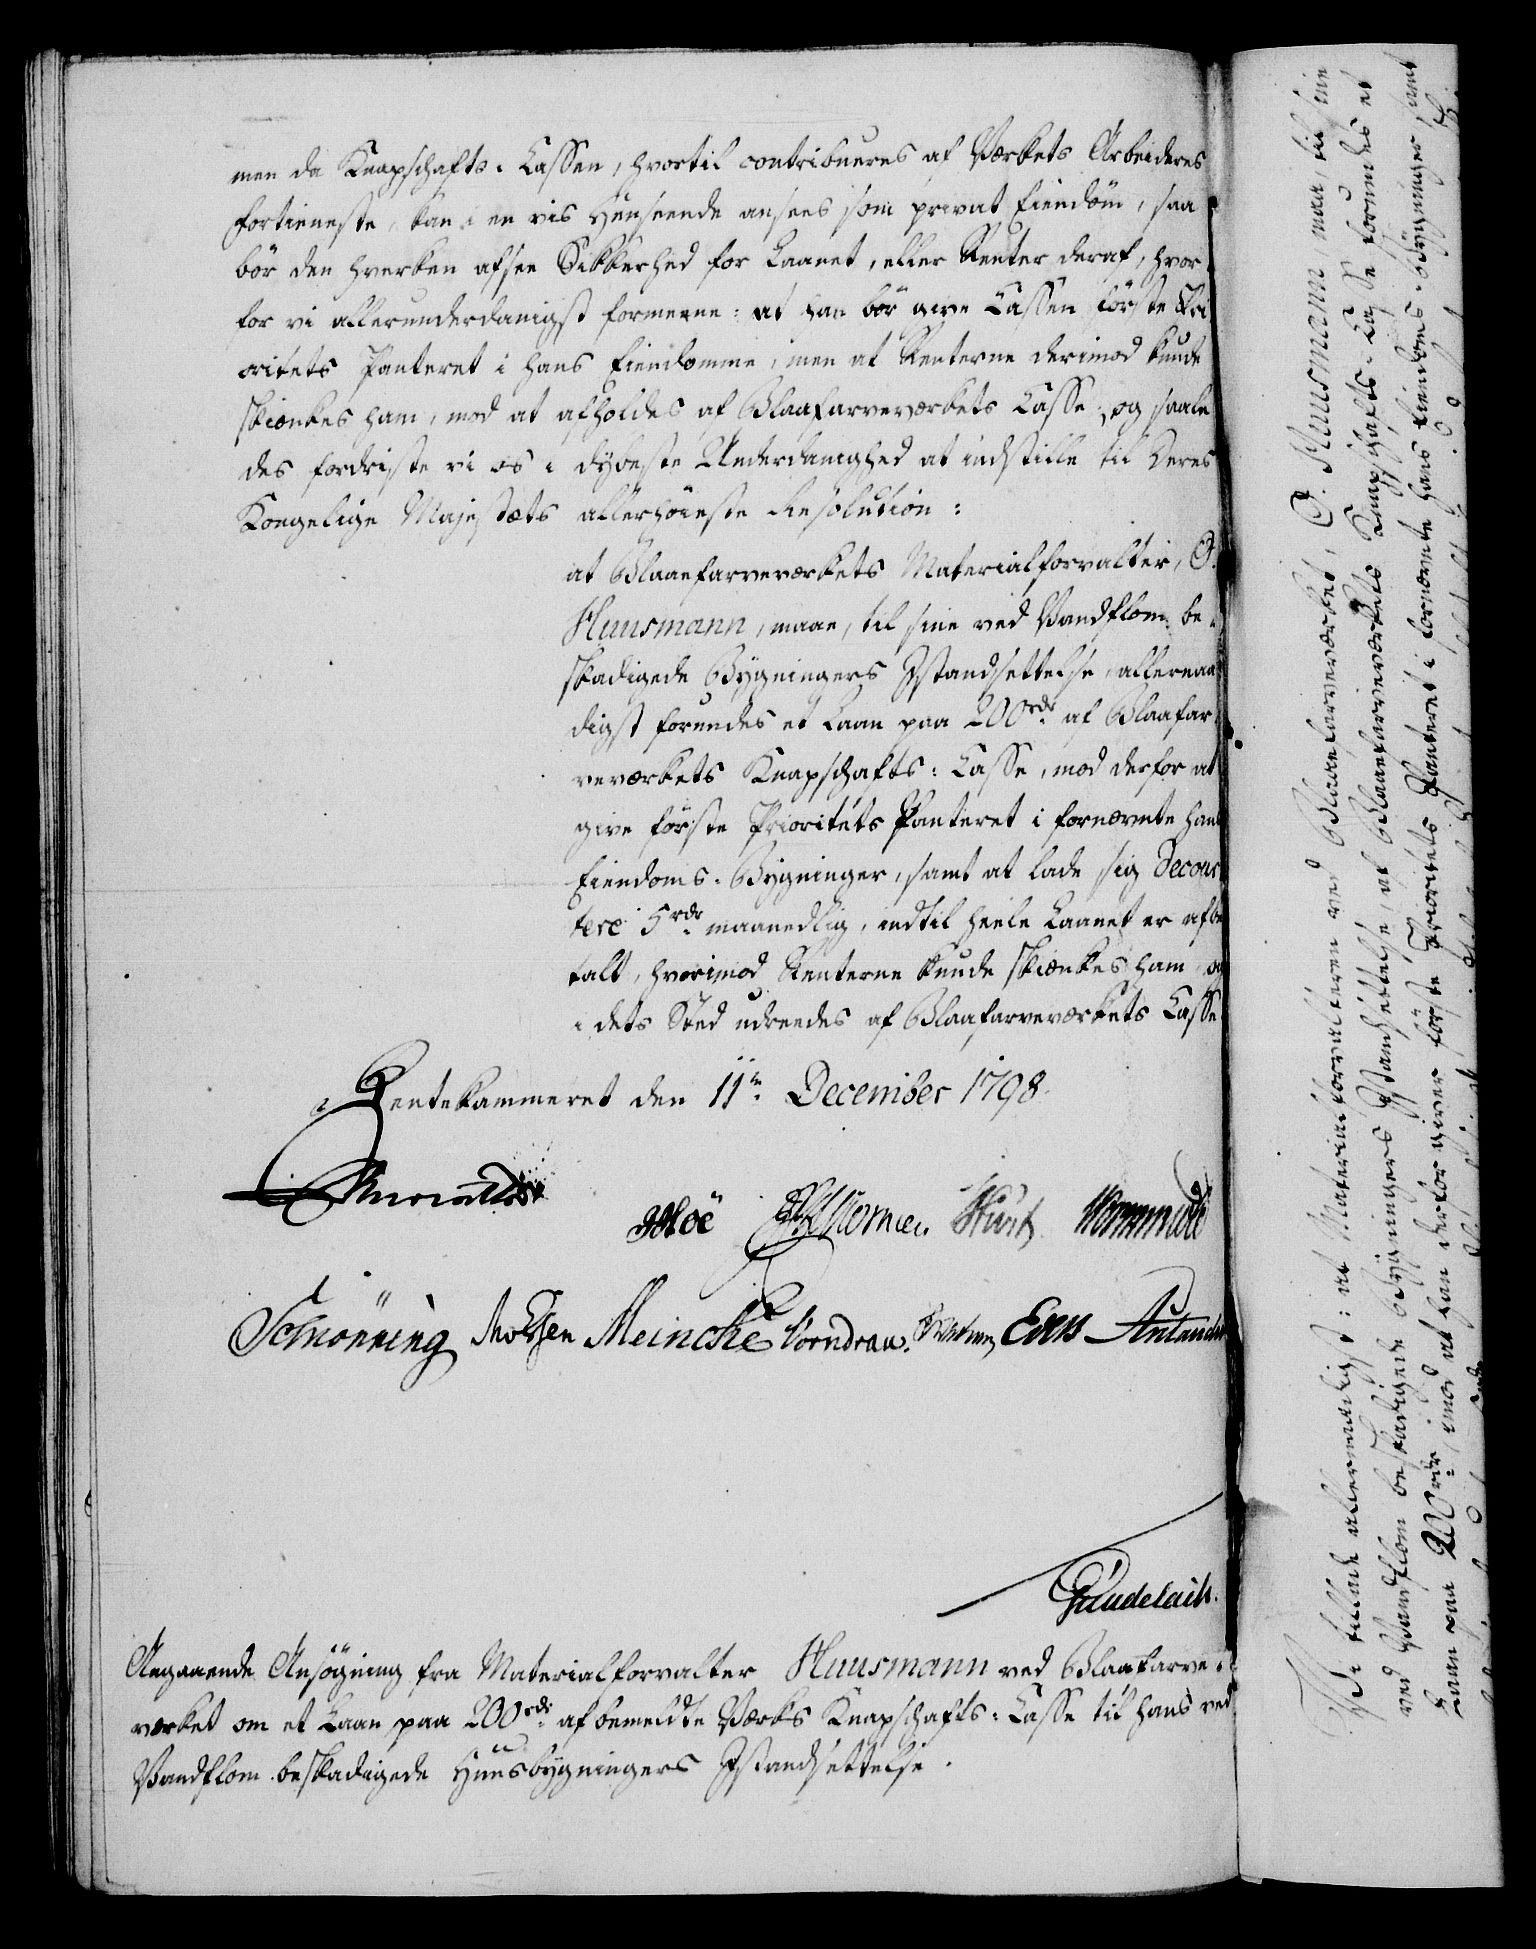 men da Knapschafts-Cassen, hvortil contribueres af Værkets Arbeideres
fortieneste, kan i en vis Henseende ansees som privat Eiendom, saa
bör den hverken afsee Sikkerhed for Laanet, eller Renter deraf, hvor
for vi allerunderdanigst formeene: at han bör give Cassen förste Pri
oritets Panteret i hans Eiendomme, men at Renterne derimod kunde
skiænkes ham, mod at afholdes af Blaafarveværkets Casse, og saale
des fordriste vi os i dybeste Underdanighed at indstille til Deres
Kongelige Majestæts allerhöieste Resolution:
at Blaaefarveværkets Materialforvalter, O.
Huusmann, maae, til sine ved Vandflom be-
skadigede Bygningers Istandsettelse, allernaa
digst forundes et Laan paa 200 rdr af Blaafar
veværkets Knapschafts-Casse, mod derfor at
give förste Prioritets Panteret i fornævnte hans
Eiendoms-Bygninger, samt at lade sig decour
tere 5 rdr maanedlig, indtil heele Laanet er afbe
talt, hvorimod Renterne kunde skiænkes ham, og
i dets Sted udreedes af Blaafarveværkets Casse
Rentekammeret den 11te December 1798.
Moë
Schönning Meincke Vorndran
Angaaende Ansögning fra Materialforvalter Huusmann ved Blaafarve-
værket om et Laan paa 200 rdr af bemeldte Værks Knapschafts-Casse til hans ved
Vandflom beskadigede Huusbygningers Istandsettelse.
Vi tillade allernaadigst: at Materialforvalteren ved Blaaefarveværket, O. Huusmann maa, til sine
ved Vandflom beskadigede Bygningers Istandsettelse, af Blaaefarveværkets Knapschafts-Casse forundes et
Laan paa 200 rdr, imod at han derfor giver förste Prioritets Panteret i fornævnte hans Eiendoms-Bygninger, samt